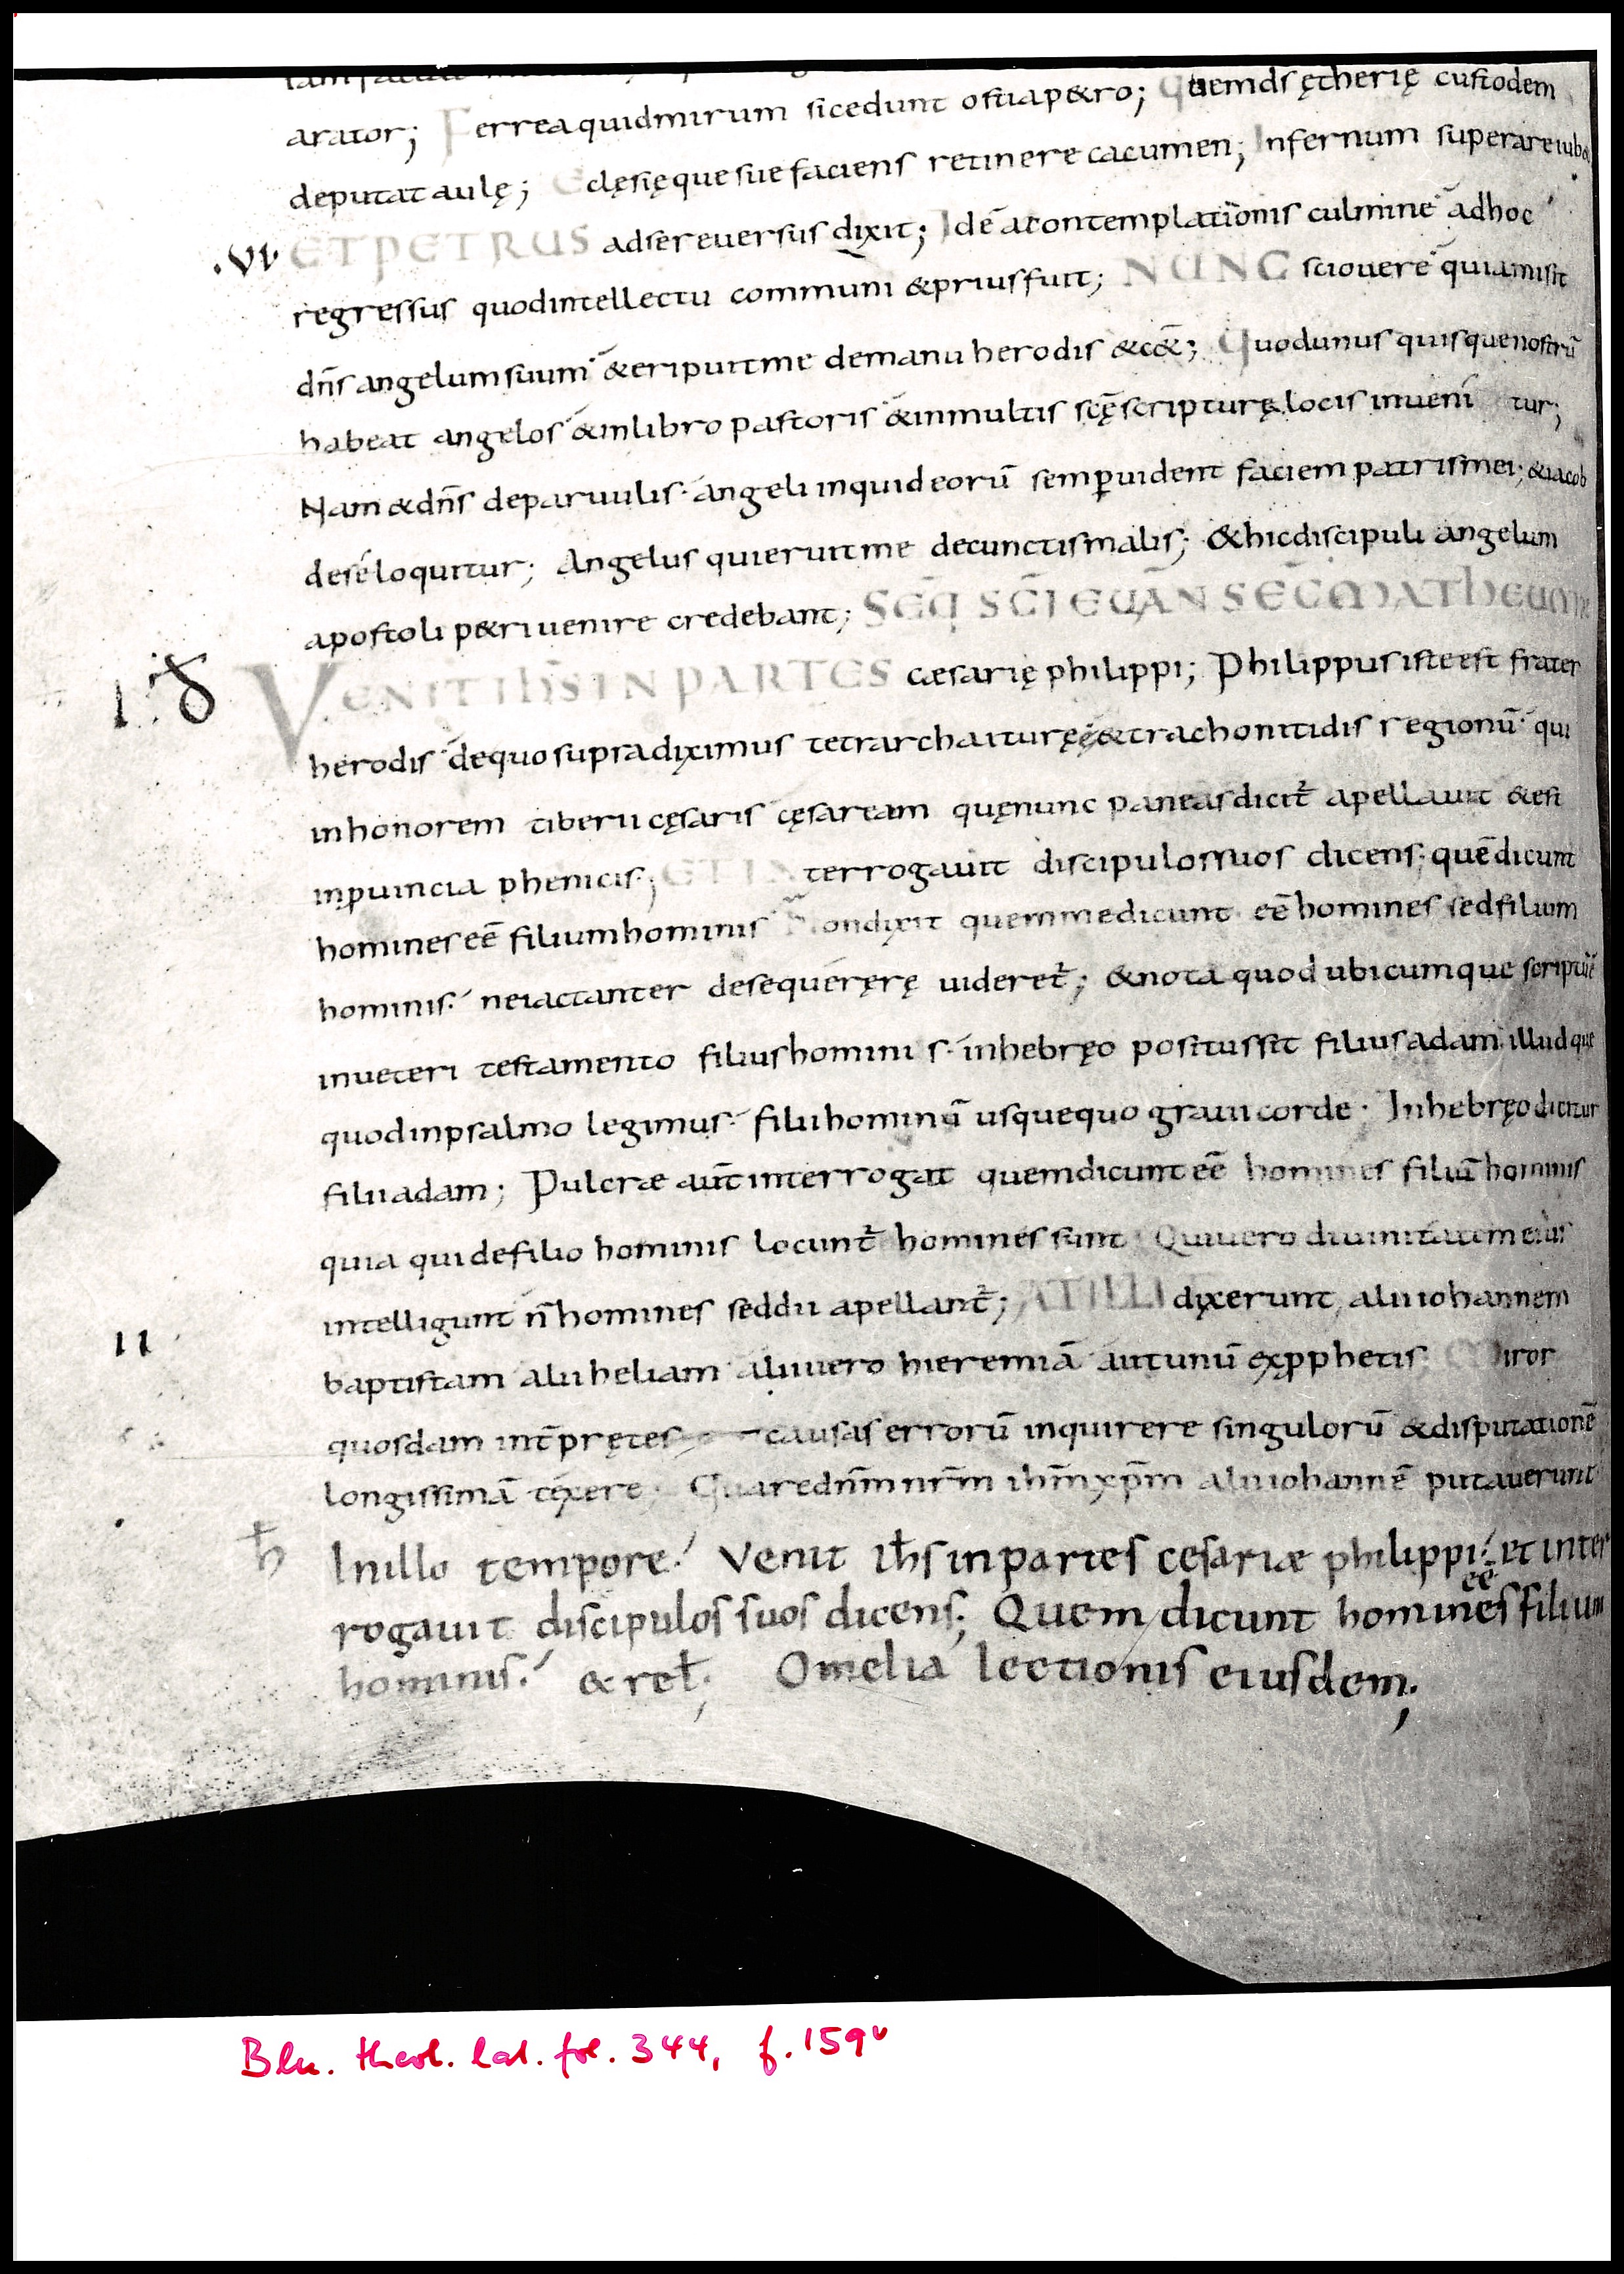 arator; Ferrea quid mirum si cedunt ostia p&ro; Quem ds ętherię custodem
deputat aulę; Eclęsięque sue faciens retinere cacumen; Infernum superare iub&
.VI. ET PETRUS ad se reversus dixit; Idē a contemplationis culmine ad hoc
regressus quod intellectu communi & prius fuit; NUNC scio vere quia misit
dn̄s angelum suum & eripuit me de manu herodis & c&̄; Quod unus quisque nostrū
habeat angelos & in libro pastoris & in multis scę̄ scripturę locis inveni tur;
Nam & dn̄s de parvulis. angeli inquid eorū semp̄ vident faciem patris mei; & iacob
de se loquitur; Angelus qui eruit me de cunctis malis; & hic discipuli angelum
apostoli p&ri venire credebant; SEQ̄ SC̄I EUAN̄ SEC̄ MATHEUM
I VENIT IH̄S IN PARTES cæsarię philippi; Philippus iste est frater
herodis de quo supra diximus tetrarcha iturę & trachonitidis regionū qui
in honorem tiberii cęsaris cęsaream quę nunc paneas dicit̄ apellavit & est
in p̄vincia phenicis; ET IN terrogavit discipulos suos dicens; quē dicunt
homines eē filium hominis Non dixit quem me dicunt eē homines sed filium
hominis. ne iactanter de se quęrerę videret̄; & nota quod ubicumque scriptū ē
in veteri testamento filius hominis. in hebręo positus sit filius adam. illudque
quod in psalmo legimus. filii hominū usquequo gravi corde. In hebręo dicitur
filii adam; Pulcræ aut̄ interrogat quem dicunt eē homines filiū hominis
quia qui de filio hominis locunt̄ homines sunt Qui vero divinitatem eius
intelligunt n̄ homines sed dii apellant̄; AT ILLI dixerunt alii iohannem
II
baptistam alii heliam alii vero hieremiā aut unū ex p̄phetis Miror
quosdam int̄prętes causas errorū inquirere singulorū & disputationē
longissimā texere Quare dn̄m nr̄m ih̄m xp̄m alii iohannē putaverunt
ħ In illo tempore. Venit ih̄s in partes cesariæ philippi. et inter
rogavit discipulos suos dicens; Quem dicunt homines eē filium
hominis. & rel̄; Omelia lectionis eiusdem;
Bln. theol. lat. fol. 344, f. 159v